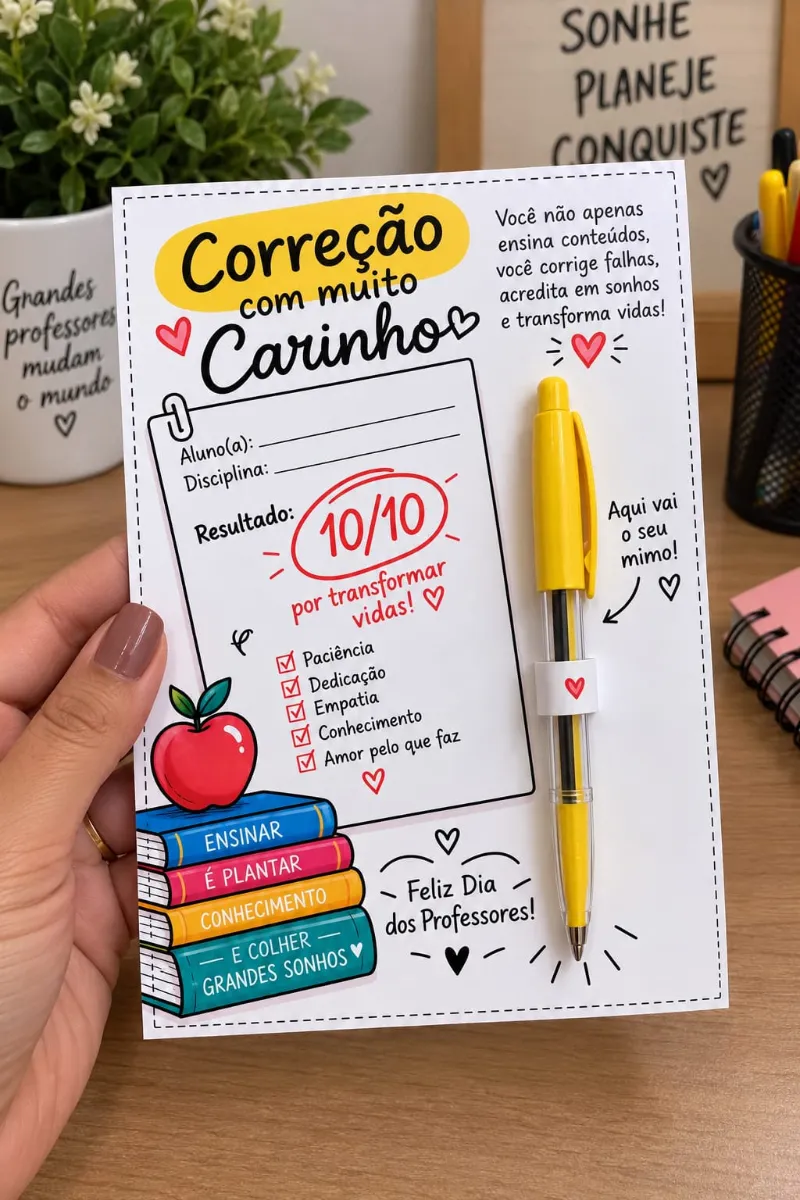 SONHE
PLANEJE
CONQUISTE
Grandes
professores
mudam
o mundo
Correção
com muito
Carinho
Você não apenas
ensina conteúdos,
você corrige falhas,
acredita em sonhos
e transforma vidas!
Aluno(a):
Disciplina:
Resultado: 10/10
por transformar
vidas!
Paciência
Dedicação
Empatia
Conhecimento
Amor pelo que faz
Aqui vai
o seu
mimo!
ENSINAR
É PLANTAR
CONHECIMENTO
E COLHER
GRANDES SONHOS
Feliz Dia
dos Professores!